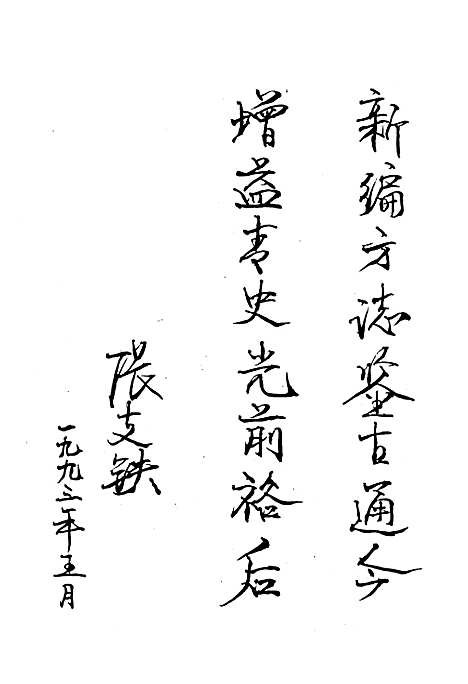 新编方誌鉴古通今
增益青史光前裕后
张支铁
一九九三年五月